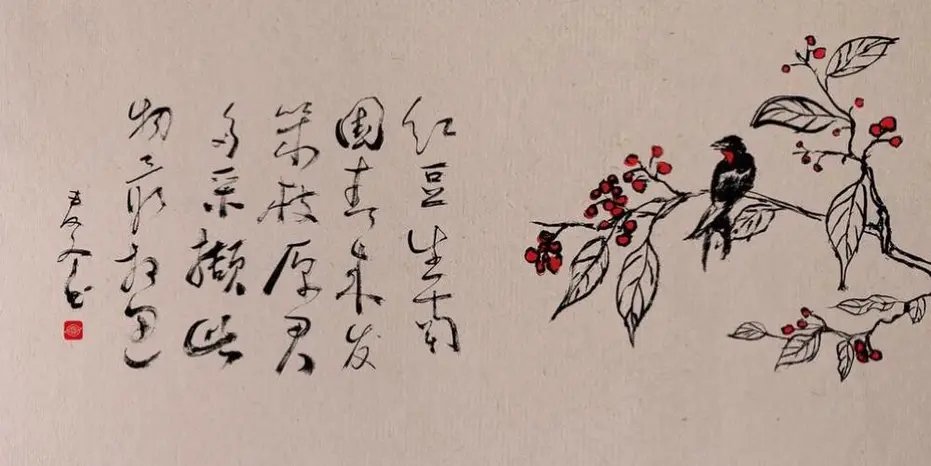 红豆生南
國春来发
幾枝愿君
多采擷此
物最相思